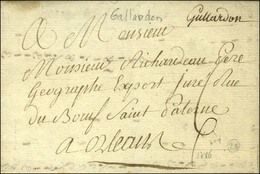 Gallardon
Gallardon
A Monsieur
Monsieur Richardeau Père
Géographe Expert juré Rue
du Boeuf Saint Paterne
a orleans
6
1786